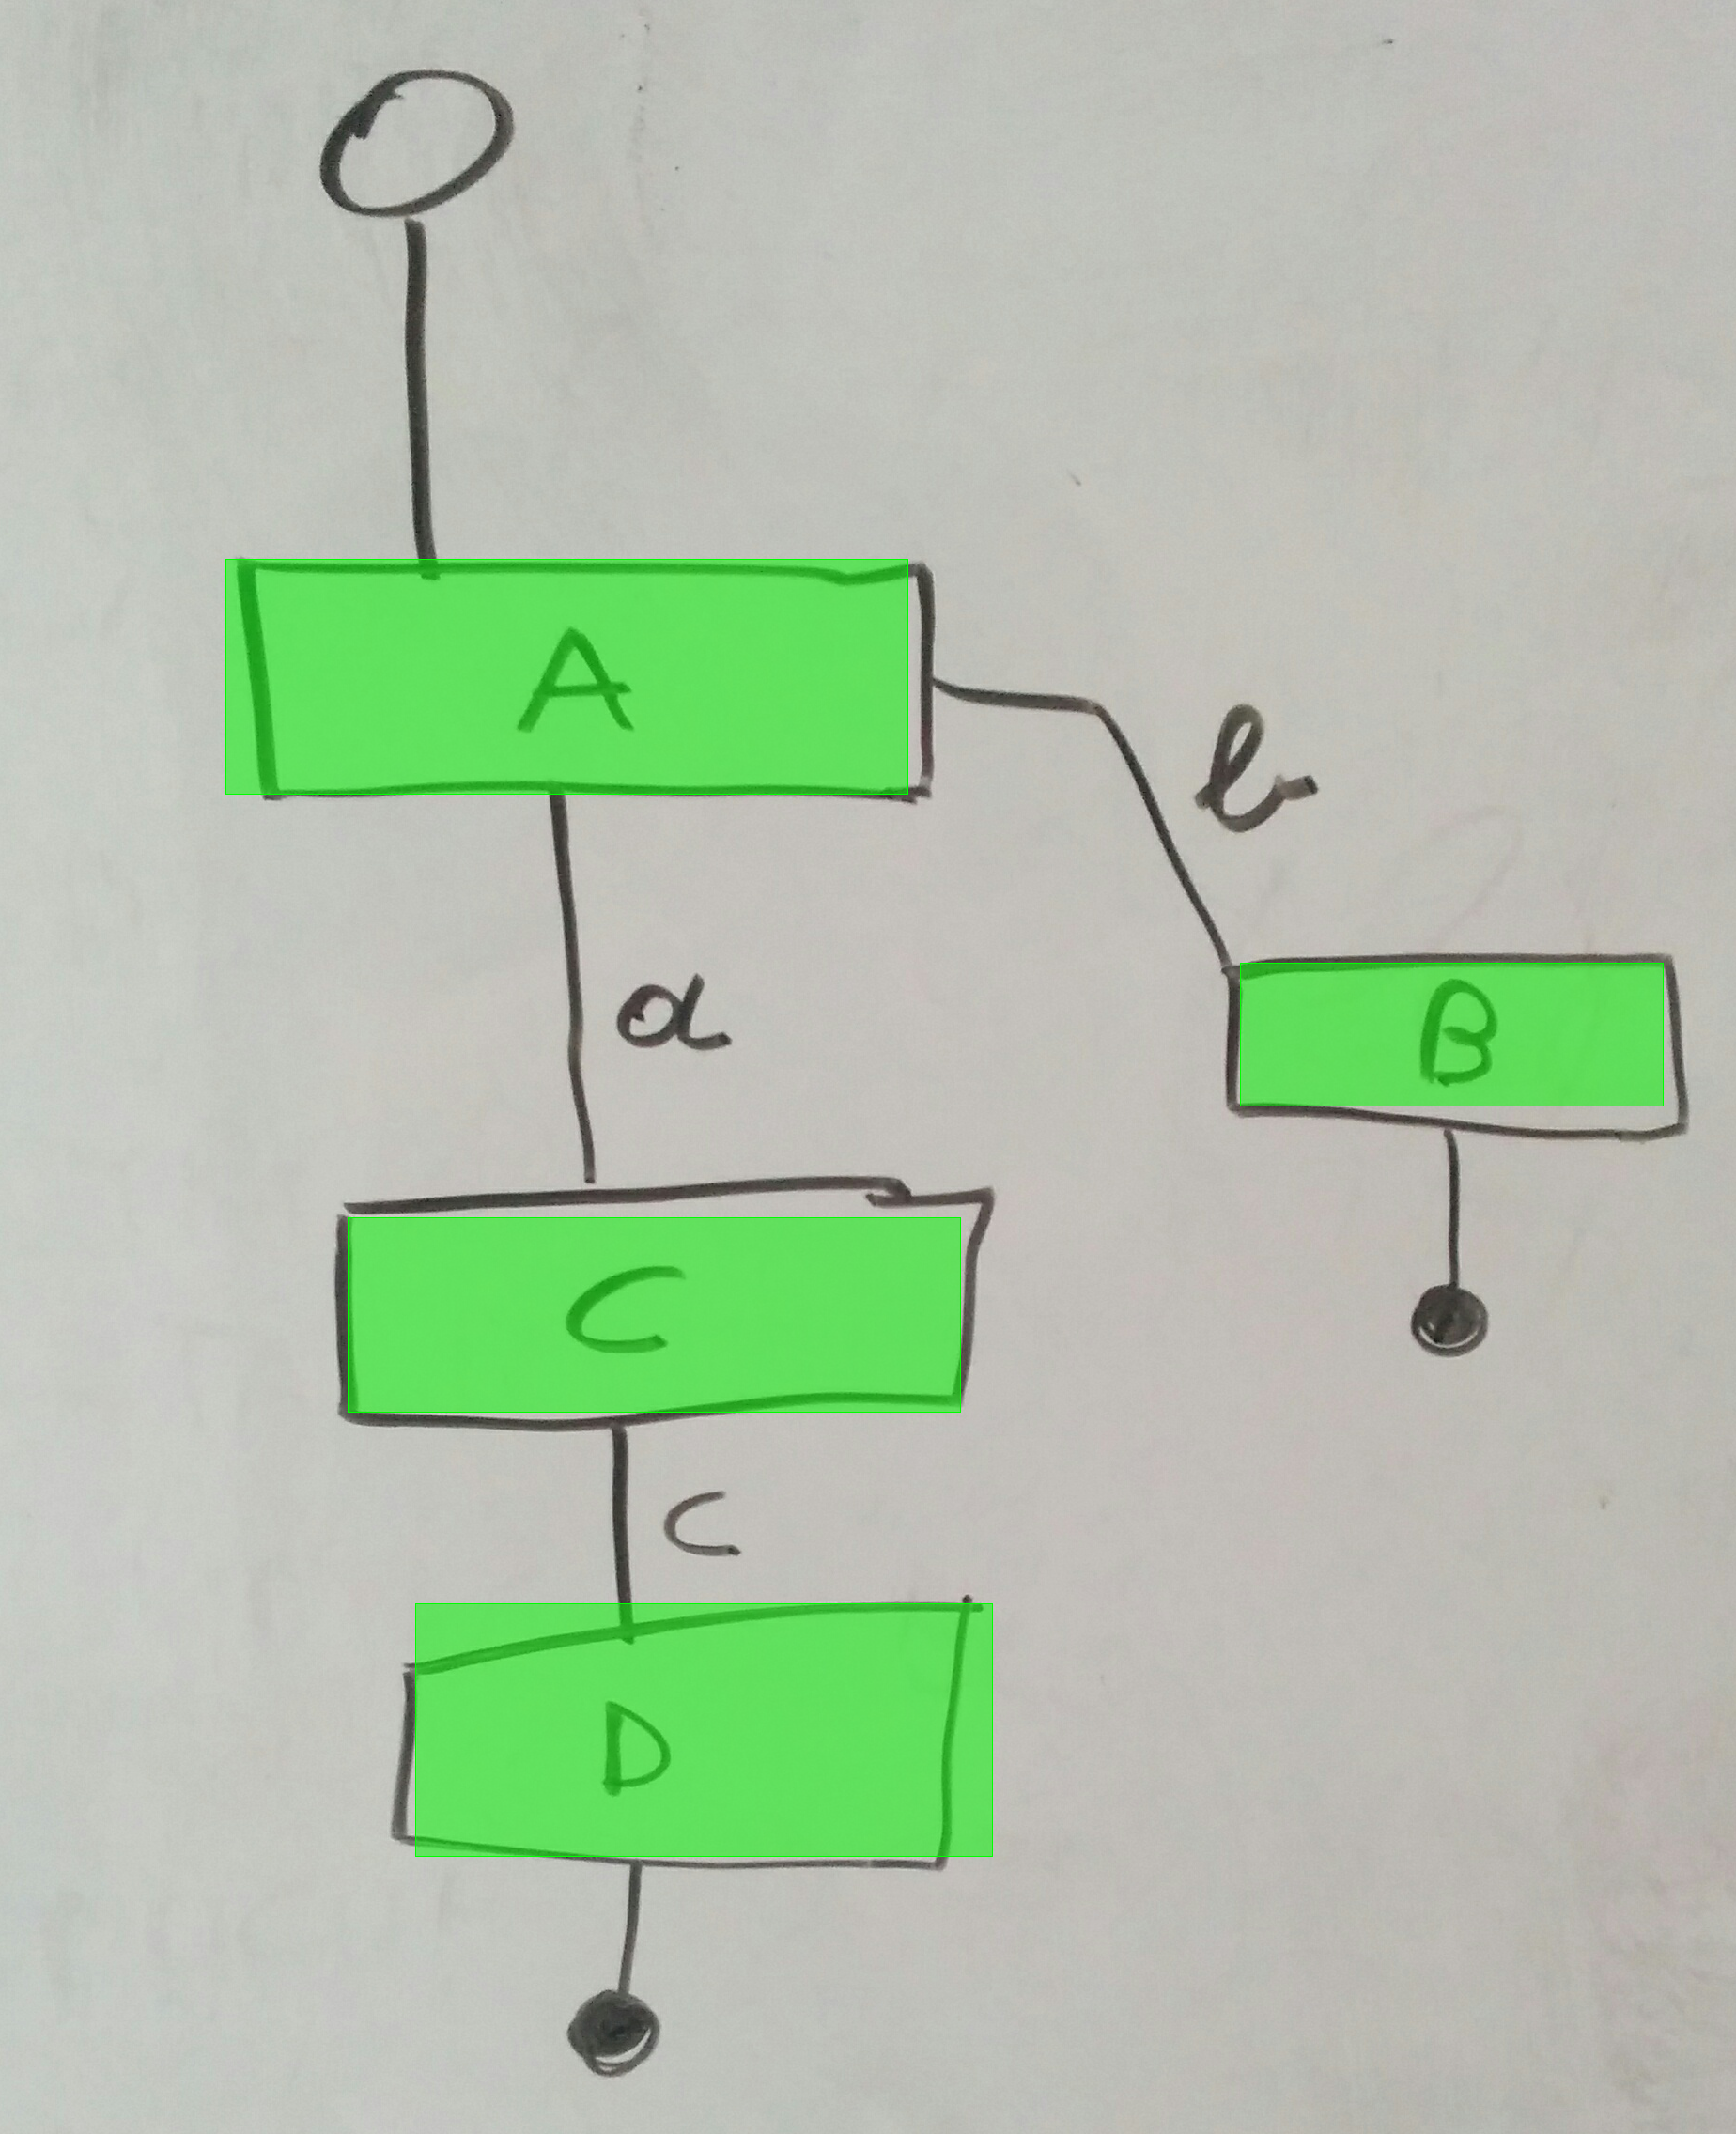 A
b
a
B
C
c
D